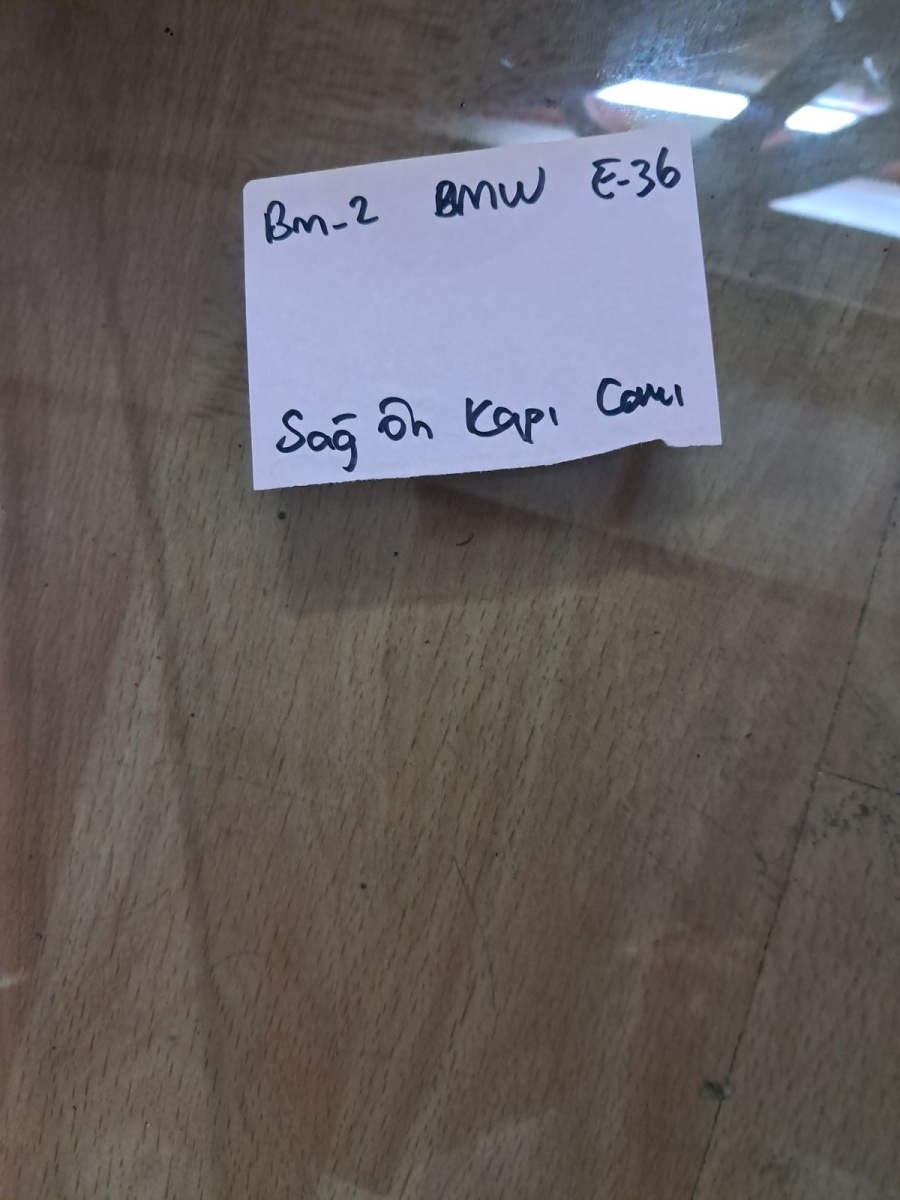 Bm-2 BMW E-36
Sağ Ön Kapı Camı